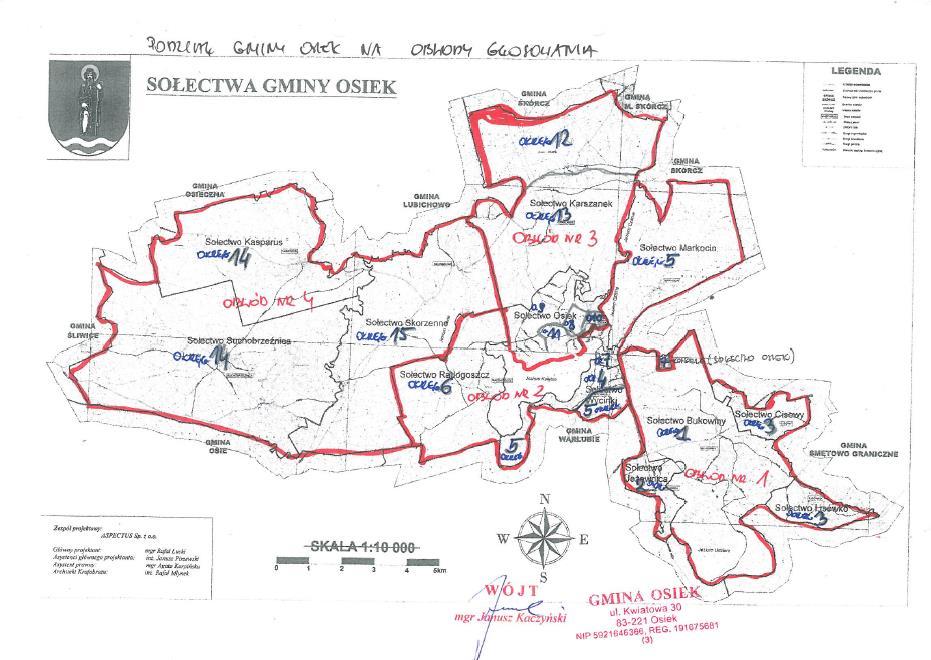 PODZIAŁ GMINY OSIEK NA OBWODY GŁOSOWANIA
SOŁECTWA GMINY OSIEK
LEGENDA
GMINA
SKÓRCZ
GMINA
M. SKÓRCZ
OKRĘG 12
GMINA
SKÓRCZ
GMINA
OSIECZNA
GMINA
LUBICHOWO
Sołectwo Karszanek
OKRĘG 13
OBWÓD NR 3
Sołectwo Kasparus
OKRĘG 14
Sołectwo Markocin
OKRĘG 5
OBWÓD NR 4
GMINA
ŚLIWICE
Sołectwo Skorzenno
OKRĘG 15
Sołectwo Osiek
11
Sołectwo Suchobrzeźnica
OKRĘG 14
(SOŁECTWO OSIEK)
Sołectwo Radogoszcz
OKRĘG 6
OBWÓD NR 2
4
Sołectwo
Wycinki
5 OKRĘG
Sołectwo Bukowiny
OKRĘG 1
Sołectwo Cisowy
OKRĘG 3
GMINA
WARLUBIE
GMINA
OSIE
5
OKRĘG
GMINA
SMĘTOWO GRANICZNE
Sołectwo
Jeżewnica
2
OBWÓD NR 1
OKRĘG 3
Zespół projektowy:
ASPECTUS Sp. z o.o.
Główny projektant: mgr Rafał Łucki
Asystent głównego projektanta: inż. Janusz Piszewski
Asystent prawny:
Architekt Krajobrazu: inż. Rafał Młynek
SKALA 1:10 000
0 1 2 3 4 5km
N
W E
S
WÓJT
mgr Janusz Kaczyński
GMINA OSIEK
ul. Kwiatowa 30
83-221 Osiek
NIP 5921646366, REG. 191675681
(3)